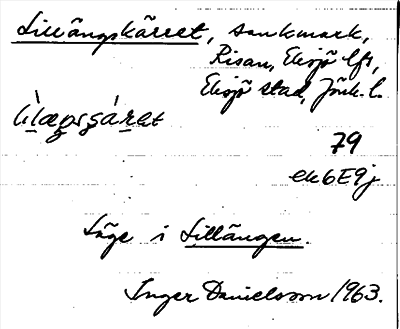 Lillängskärret, sankmark,
Risan, Eksjö lfs,
Eksjö stad, Jönk. l.
79
ek6E9j
Läge i Lillängen.
Inger Danielsson 1963.